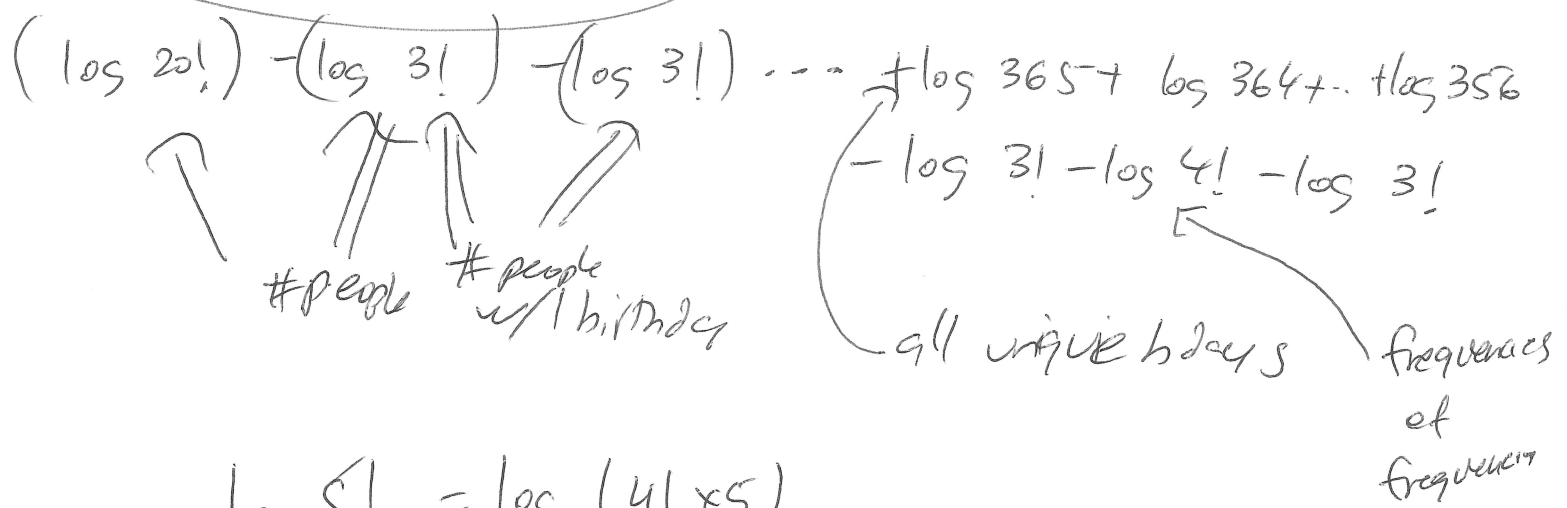 (log 20!) -(log 3!) -(log 3!) ... +log 365+ log 364+.. +log 356
- log 3! -log 4! -log 3!
#people
#people
w/ 1 birthday
all unique bdays
frequencies
of
= log (4! x5)